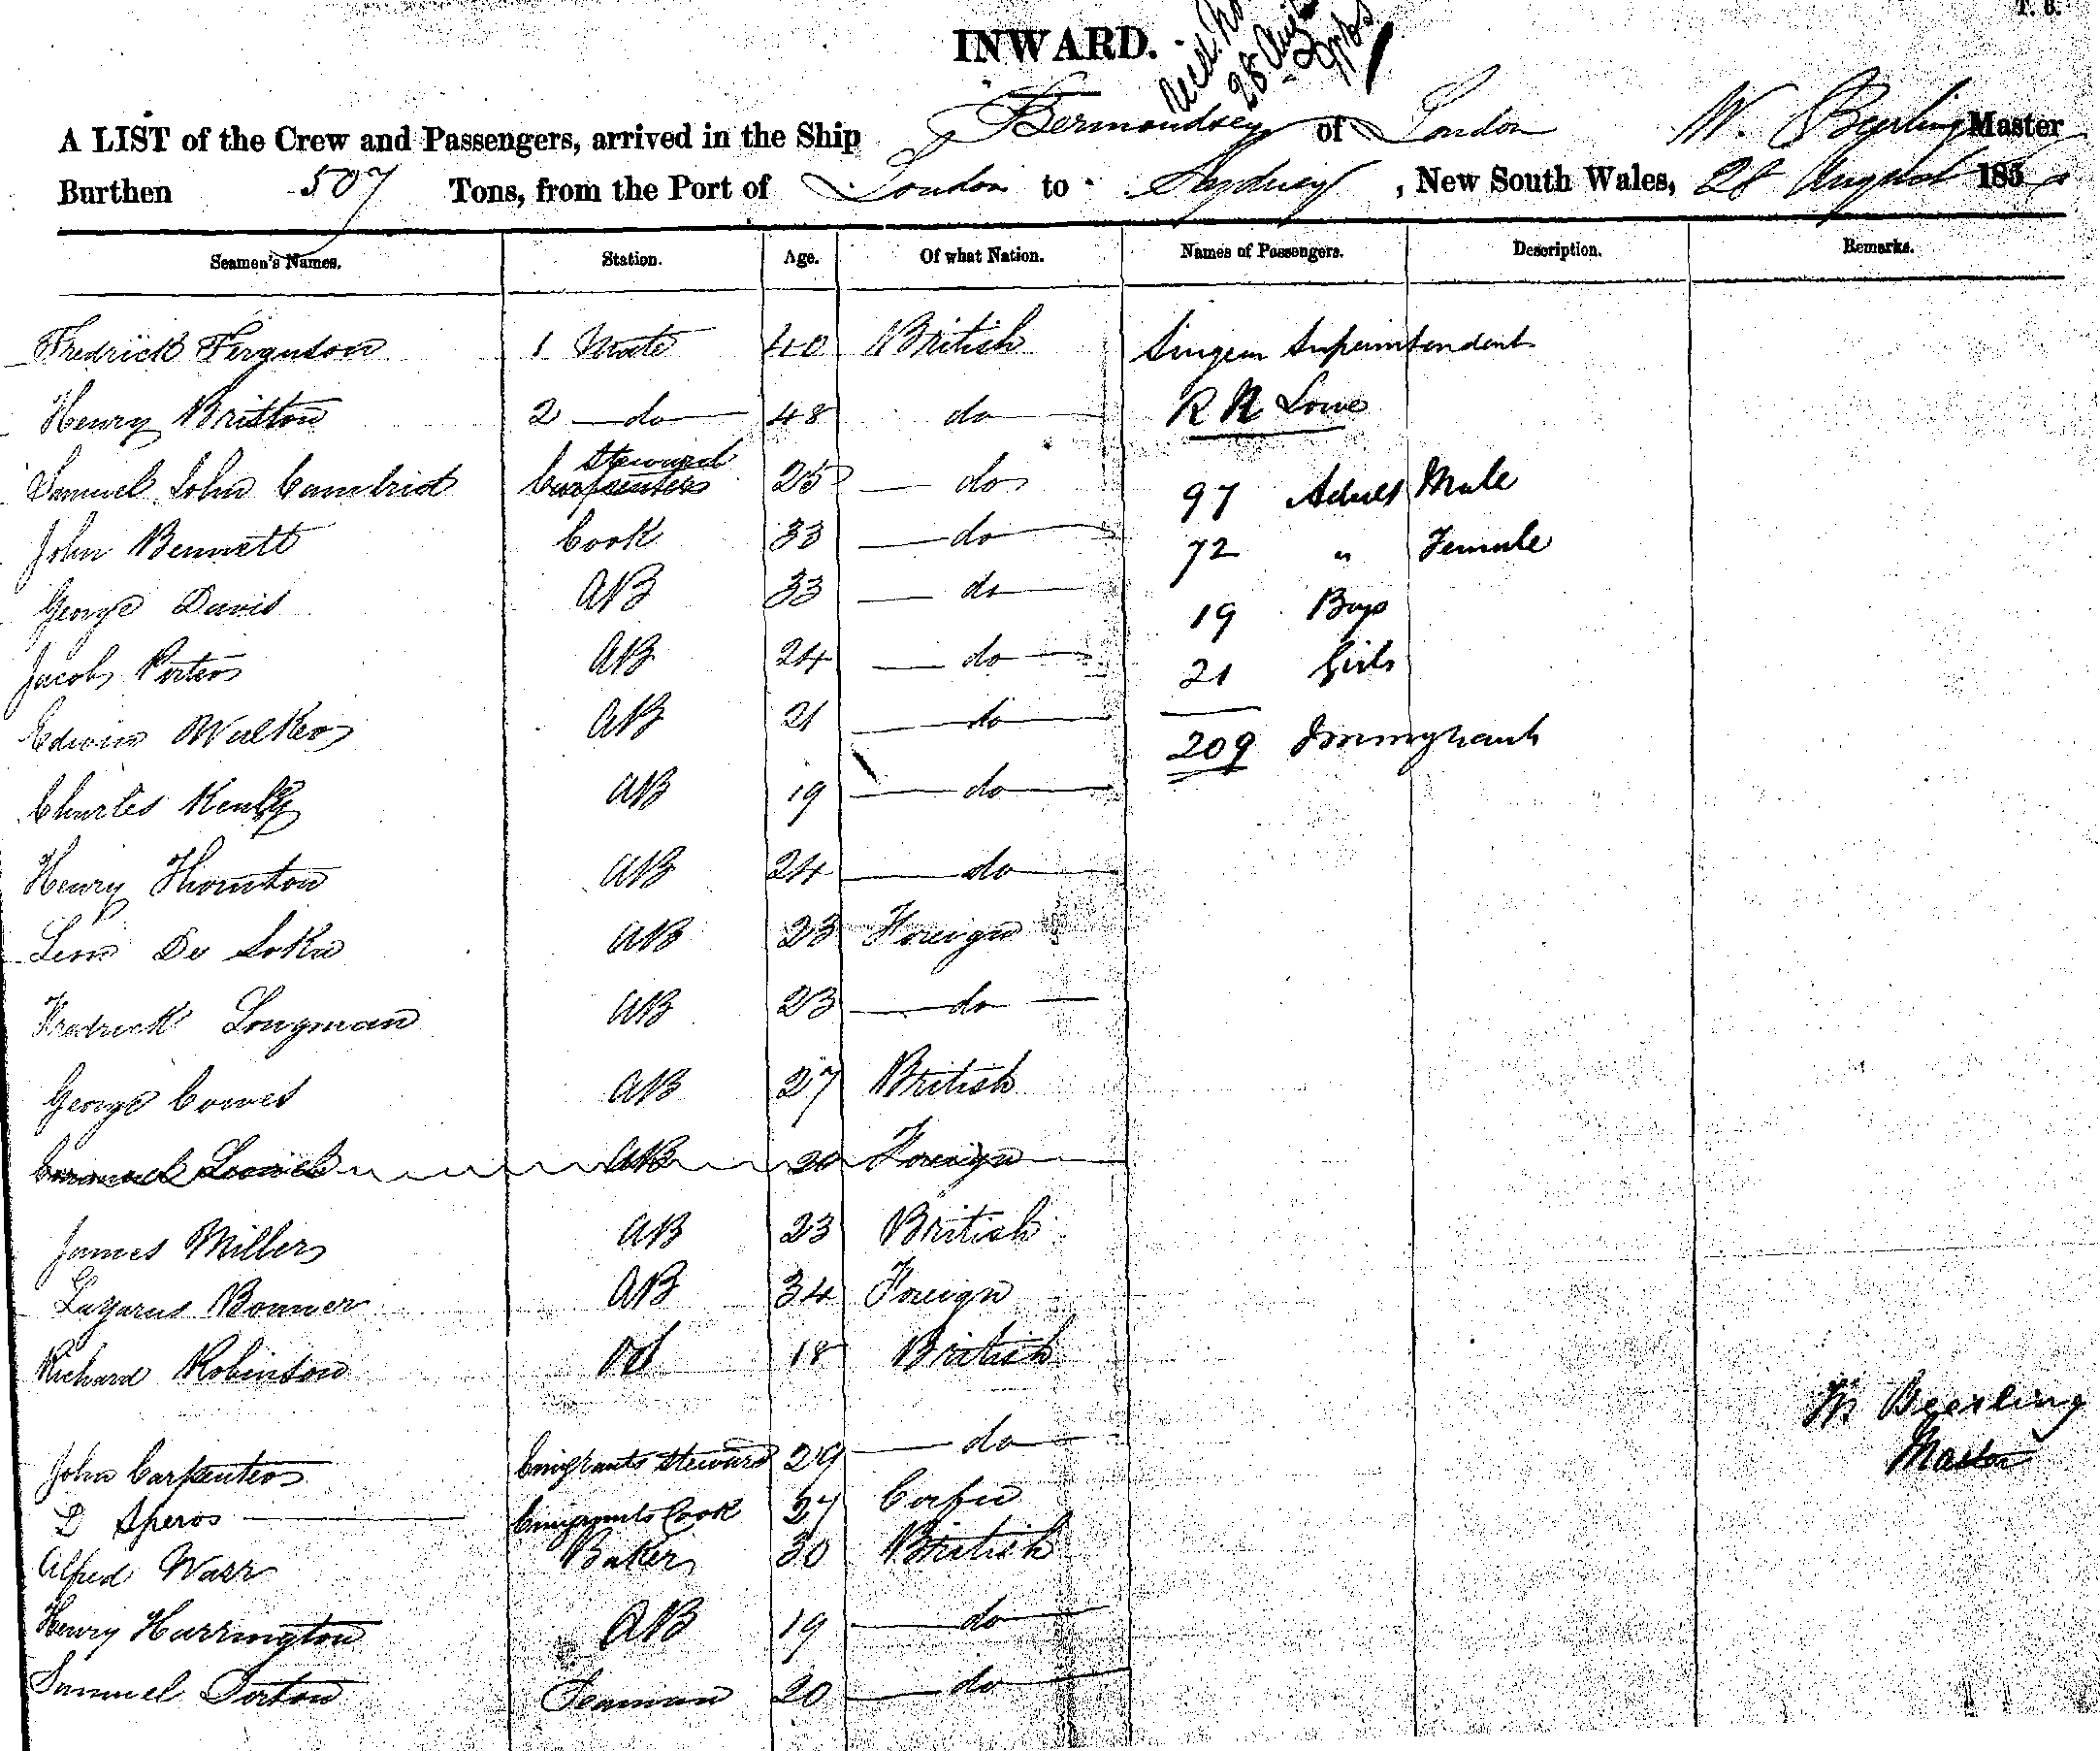 T. B.
INWARD.
28 Aug
A LIST of the Crew and Passengers, arrived in the Ship Bermondsey of London W. Beerling Master
Burthen 507 Tons, from the Port of London to Sydney, New South Wales, 28 August 185
Seamen's Names. Station. Age. Of what Nation. Names of Passengers. Description. Remarks.
Fredrick Ferguson 1 Mate 40 British Surgeon Superintendent
Henry Britton 2 do 48 do R N Lowe
Samuel John Cambrid Steward Carpenter 25 do 97 Adult Male
John Bennett Cook 33 do 72 " Female
George Davis AB 33 do 19 Boys
Jacob Porter AB 24 do 21 Girls
Edwin Walker AB 21 do 209 Immigrants
Charles AB 19 do
Henry Thornton AB 24 do
Leon De AB 23 Foreign
Fredrick Longman AB 23 do
George Cowes AB 27 British
AB 20 Foreign
James Miller AB 23 British
Lazarus Bonner AB 34 Foreign
Richard Robinson Od 18 British
John Carpenter Emigrants Steward 29 do
D Speros Emigrants Cook 27 Corfu
Alfred Warr Baker 30 British
Henry Harrington AB 19 do
Samuel Torton Seaman 20 do
W Beerling
Master